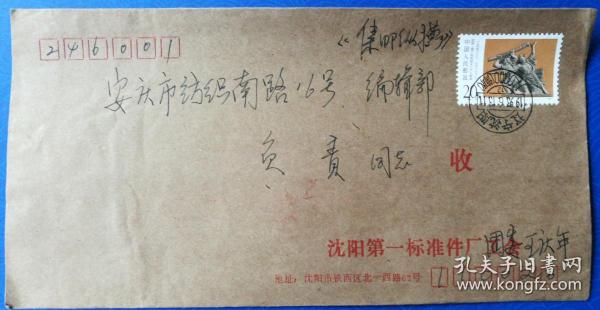 246001
《集邮纵横》
中国人民邮政
20
安庆市纺织南路16号 编辑部
负责同志 收
辽宁沈阳
沈阳第一标准件厂
团委
年
地址：沈阳市铁西区北一西路62号
孔夫子旧书网
www.kongfz.com